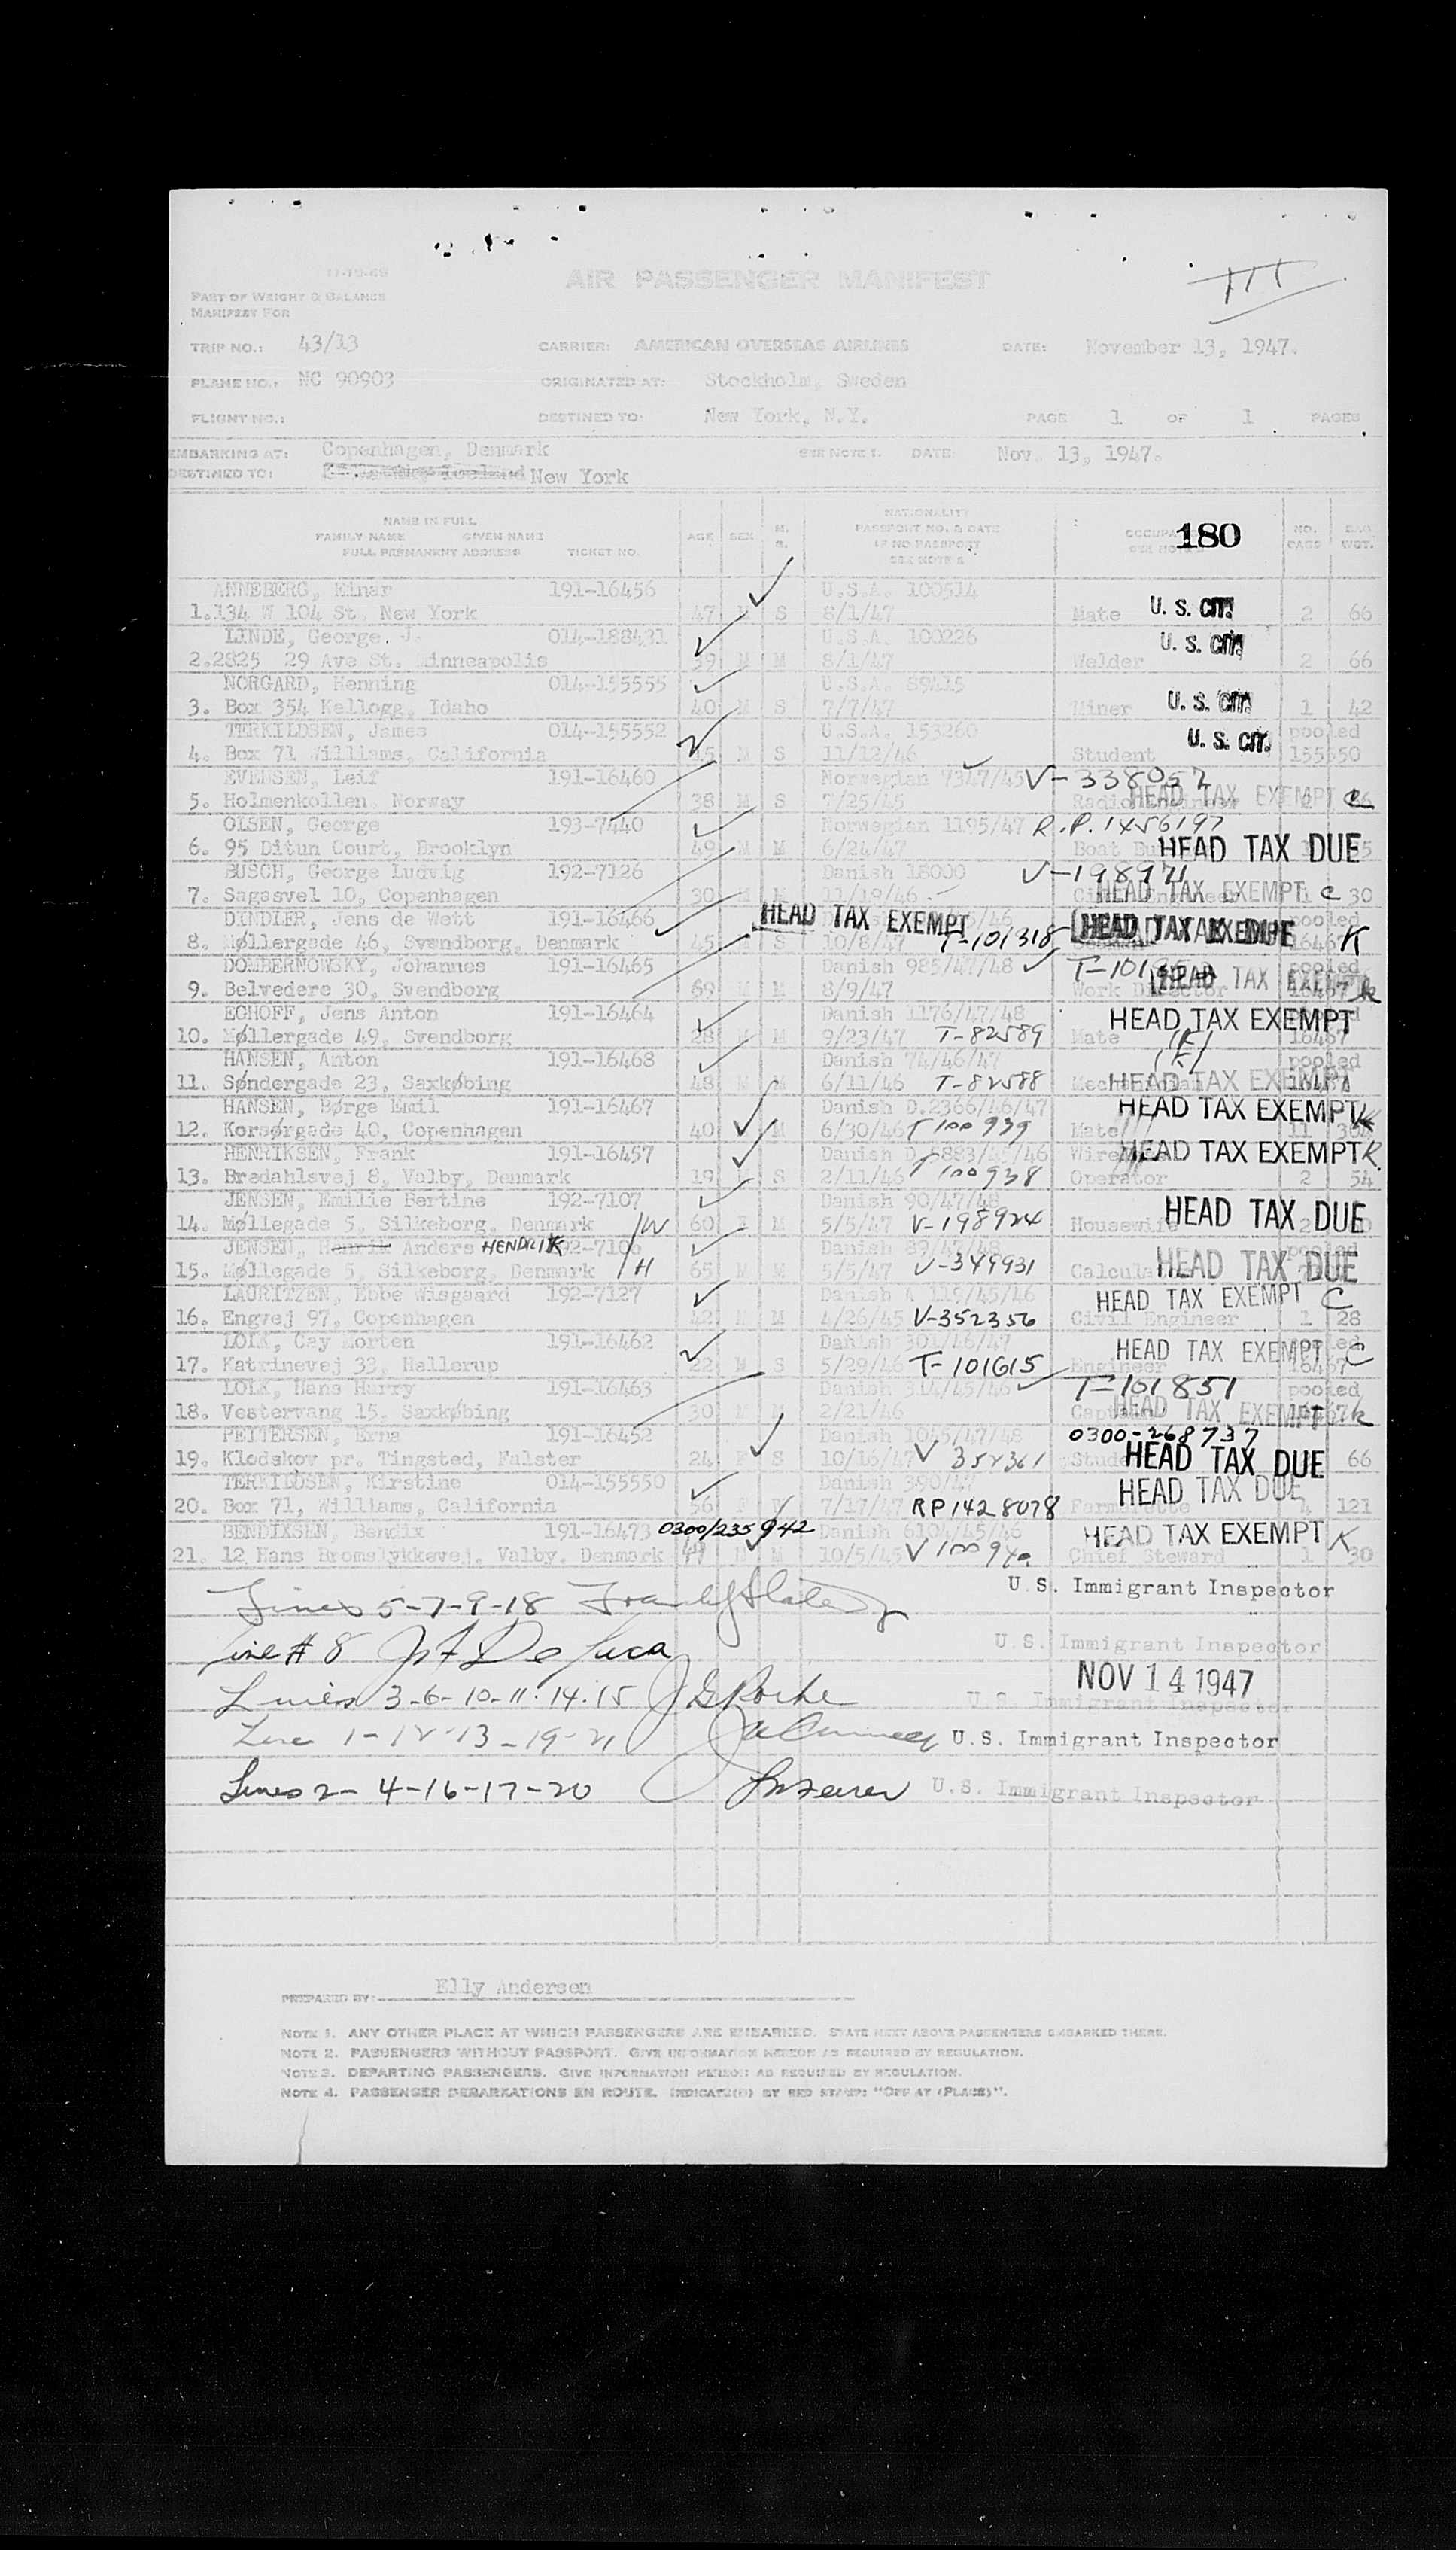 11-19-46
AIR PASSENGER MANIFEST
III
PART OF WEIGHT & BALANCE
MANIFEST FOR
TRIP NO.: 43/13 CARRIER: AMERICAN OVERSEAS AIRLINES DATE: November 13, 1947.
PLANE NO.: NC 90903 ORIGINATED AT: Stockholm, Sweden
FLIGHT NO.: DESTINED TO: New York, N.Y. PAGE 1 OF 1 PAGES
EMBARKING AT: Copenhagen, Denmark SEE NOTE 1. DATE: Nov. 13, 1947.
DESTINED TO: New York
NAME IN FULL
FAMILY NAME GIVEN NAME
FULL PERMANENT ADDRESS TICKET NO. AGE SEX M. S. NATIONALITY PASSPORT NO. & DATE IF NO PASSPORT SEE NOTE 2 180 NO. BAGS BAG. WGT.
ANNEBERG, Einar 191-16456 U.S.A. 100514
1. 134 W 104 St. New York 47 M S 8/1/47 Mate U. S. CIT. 2 66
LINDE, George J. 014-188431 U.S.A. 100226 U. S. CIT.
2. 2825 29 Ave St. Minneapolis 39 M M 8/1/47 Welder 2 66
NORGARD, Henning 014-155555 U.S.A. 89415
3. Box 354 Kellogg, Idaho 40 M S 7/7/47 Miner U. S. CIT. 1 42
TERKILDSEN, James 014-155552 U.S.A. 153260 U. S. CIT. pooled
4. Box 71 Williams, California M S 11/12/46 Student 155550
EVENSEN, Leif 191-16460 Norwegian 7347/45 V-338052
5. Holmenkollen, Norway 38 M S 7/25/45 Radio Engineer HEAD TAX EXEMPT C
OLSEN, George 193-7440 Norwegian 1195/47 R.P. 1456197
6. 95 Ditun Court, Brooklyn 49 M M 6/24/47 Boat HEAD TAX DUE
BUSCH, George Ludvig 192-7126 Danish 18000 V-198971
7. Sagasvej 10, Copenhagen 30 M M 11/19/46 HEAD TAX EXEMPT C 1 30
DINDLER, Jens de Wett 191-16466 HEAD TAX EXEMPT pooled
8. Møllergade 46, Svendborg, Denmark 45 M S 10/8/47 T-101318 HEAD TAX DUE K
DOMBERNOWSKY, Johannes 191-16465 Danish 985/47/48 pooled
9. Belvedere 30, Svendborg 69 M M 8/9/47 Work Director HEAD TAX EXEMPT 16467 k
EGHOFF, Jens Anton 191-16464 Danish 1176/47/48 HEAD TAX EXEMPT
10. Møllergade 49, Svendborg 28 M M 9/23/47 T-82589 Mate (K) 16467
HANSEN, Anton 191-16468 Danish 74/46/47 (K) pooled
11. Søndergade 23, Saxkøbing 48 M M 6/11/46 T-82588 HEAD TAX EXEMPT
HANSEN, Børge Emil 191-16467 Danish D.2366/46/47 HEAD TAX EXEMPT K
12. Korsørgade 40, Copenhagen 40 M 6/30/46 T 100939 Mate 11
HENRIKSEN, Frank 191-16457 Danish HEAD TAX EXEMPT K
13. Bredahlsvej 8, Valby, Denmark 19 M S 2/11/46 T 100938 Operator 2 54
JENSEN, Emilie Bertine 192-7107 Danish 90/47/48
14. Møllegade 5, Silkeborg, Denmark /W 60 F M 5/5/47 V-198924 Housewife HEAD TAX DUE
JENSEN, Henrik Anders HENDRIK 192-7106 Danish 89/47/48 pooled
15. Møllegade 5, Silkeborg, Denmark /H 65 M M 5/5/47 V-349931 HEAD TAX DUE
LAURITZEN, Ebbe Wisgaard 192-7127 Danish HEAD TAX EXEMPT C
16. Engvej 97, Copenhagen 42 M M 4/26/45 V-352356 Civil Engineer 1 28
LOIK, Cay Morten 191-16462 Danish HEAD TAX EXEMPT C
17. Katrinevej 33, Hellerup 22 M S 5/29/46 T-101615 Engineer 16467
LOIK, Hans Harry 191-16463 Danish 314/45/46 T-101851 pooled
18. Vestervang 15, Saxkøbing 30 M M 2/21/46 Captain HEAD TAX EXEMPT k
PETTERSEN, Erna 191-16452 Danish 1045/47/48 0300-268737
19. Klodskov pr. Tingsted, Falster 24 F S 10/16/47 V 352361 HEAD TAX DUE 66
TERKILDSEN, Kirstine 014-155550 Danish 390/47 HEAD TAX DUE
20. Box 71, Williams, California 56 F 7/17/47 RP 1428078 4 121
BENDIXSEN, Bendix 191-16473 0300/235942 Danish 6104/45/46 HEAD TAX EXEMPT K
21. 12 Hans Bromslykkevej, Valby, Denmark M M 10/5/45 V 100940 Chief Steward 1 30
Lines 5-7-9-18 U.S. Immigrant Inspector
Line # 8 De Luca U.S. Immigrant Inspector
NOV 14 1947
Lines 3-6-10-11-14-15 U.S. Immigrant Inspector
Line 1-12-13-19-21 U.S. Immigrant Inspector
Lines 2-4-16-17-20 U.S. Immigrant Inspector
PREPARED BY: Elly Andersen
NOTE 1. ANY OTHER PLACE AT WHICH PASSENGERS ARE EMBARKED. STATE NEXT ABOVE PASSENGERS EMBARKED THERE.
NOTE 2. PASSENGERS WITHOUT PASSPORT. GIVE INFORMATION HEREON AS REQUIRED BY REGULATION.
NOTE 3. DEPARTING PASSENGERS. GIVE INFORMATION HEREON AS REQUIRED BY REGULATION.
NOTE 4. PASSENGER DEBARKATIONS EN ROUTE. INDICATE(D) BY RED STAMP: "OFF AT (PLACE)".